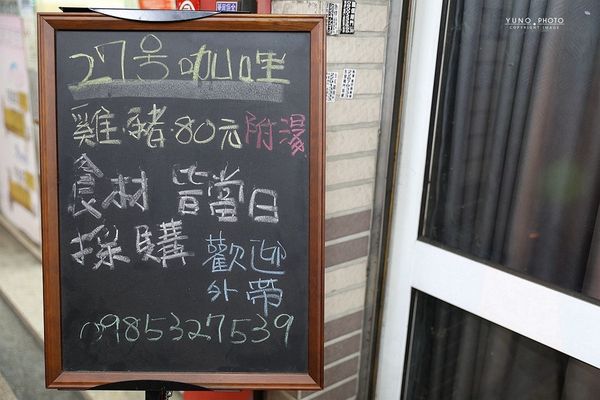 27号咖哩
雞·豬·80元 附湯
食材 皆當日
採購 歡迎
外帶
0985327539
YUNO.PHOTO
COPYRIGHT IMAGE